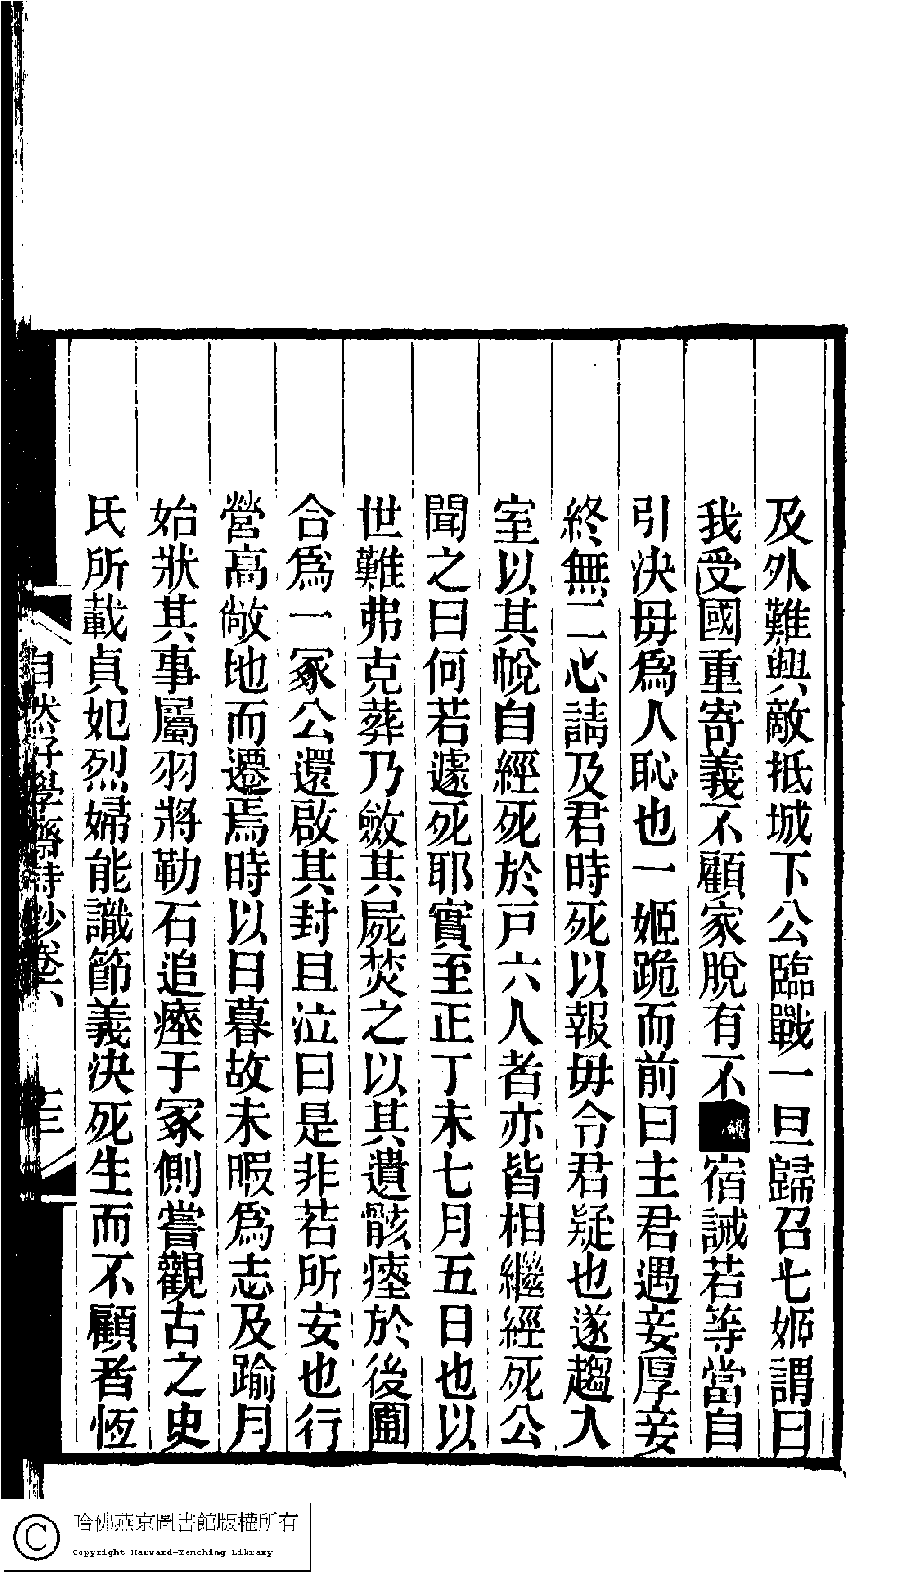 及外難興敵抵城下公臨戰一旦歸召七姬謂曰
我受國重寄義不顧家脫有不宿誡若等當自
引決毋爲人恥也一姬跪而前曰主君遇妾厚妾
終無二心請及君時死以報毋令君疑也遂趨入
室以其帨自經死於戶六人者亦皆相繼經死公
聞之曰何若遽死耶實至正丁未七月五日也以
世難弗克葬乃斂其屍焚之以其遺骸瘞於後圃
合爲一冢公還啟其封且泣曰是非若所安也行
營高敞地而遷焉時以日暮故未暇爲志及踰月
始狀其事屬羽將勒石追瘞于冢側嘗觀古之史
氏所載貞妃烈婦能識節義決死生而不顧者恆
自然好學齋詩鈔卷六
三
哈佛燕京圖書館版權所有
Copyright Harvard-Yenching Library